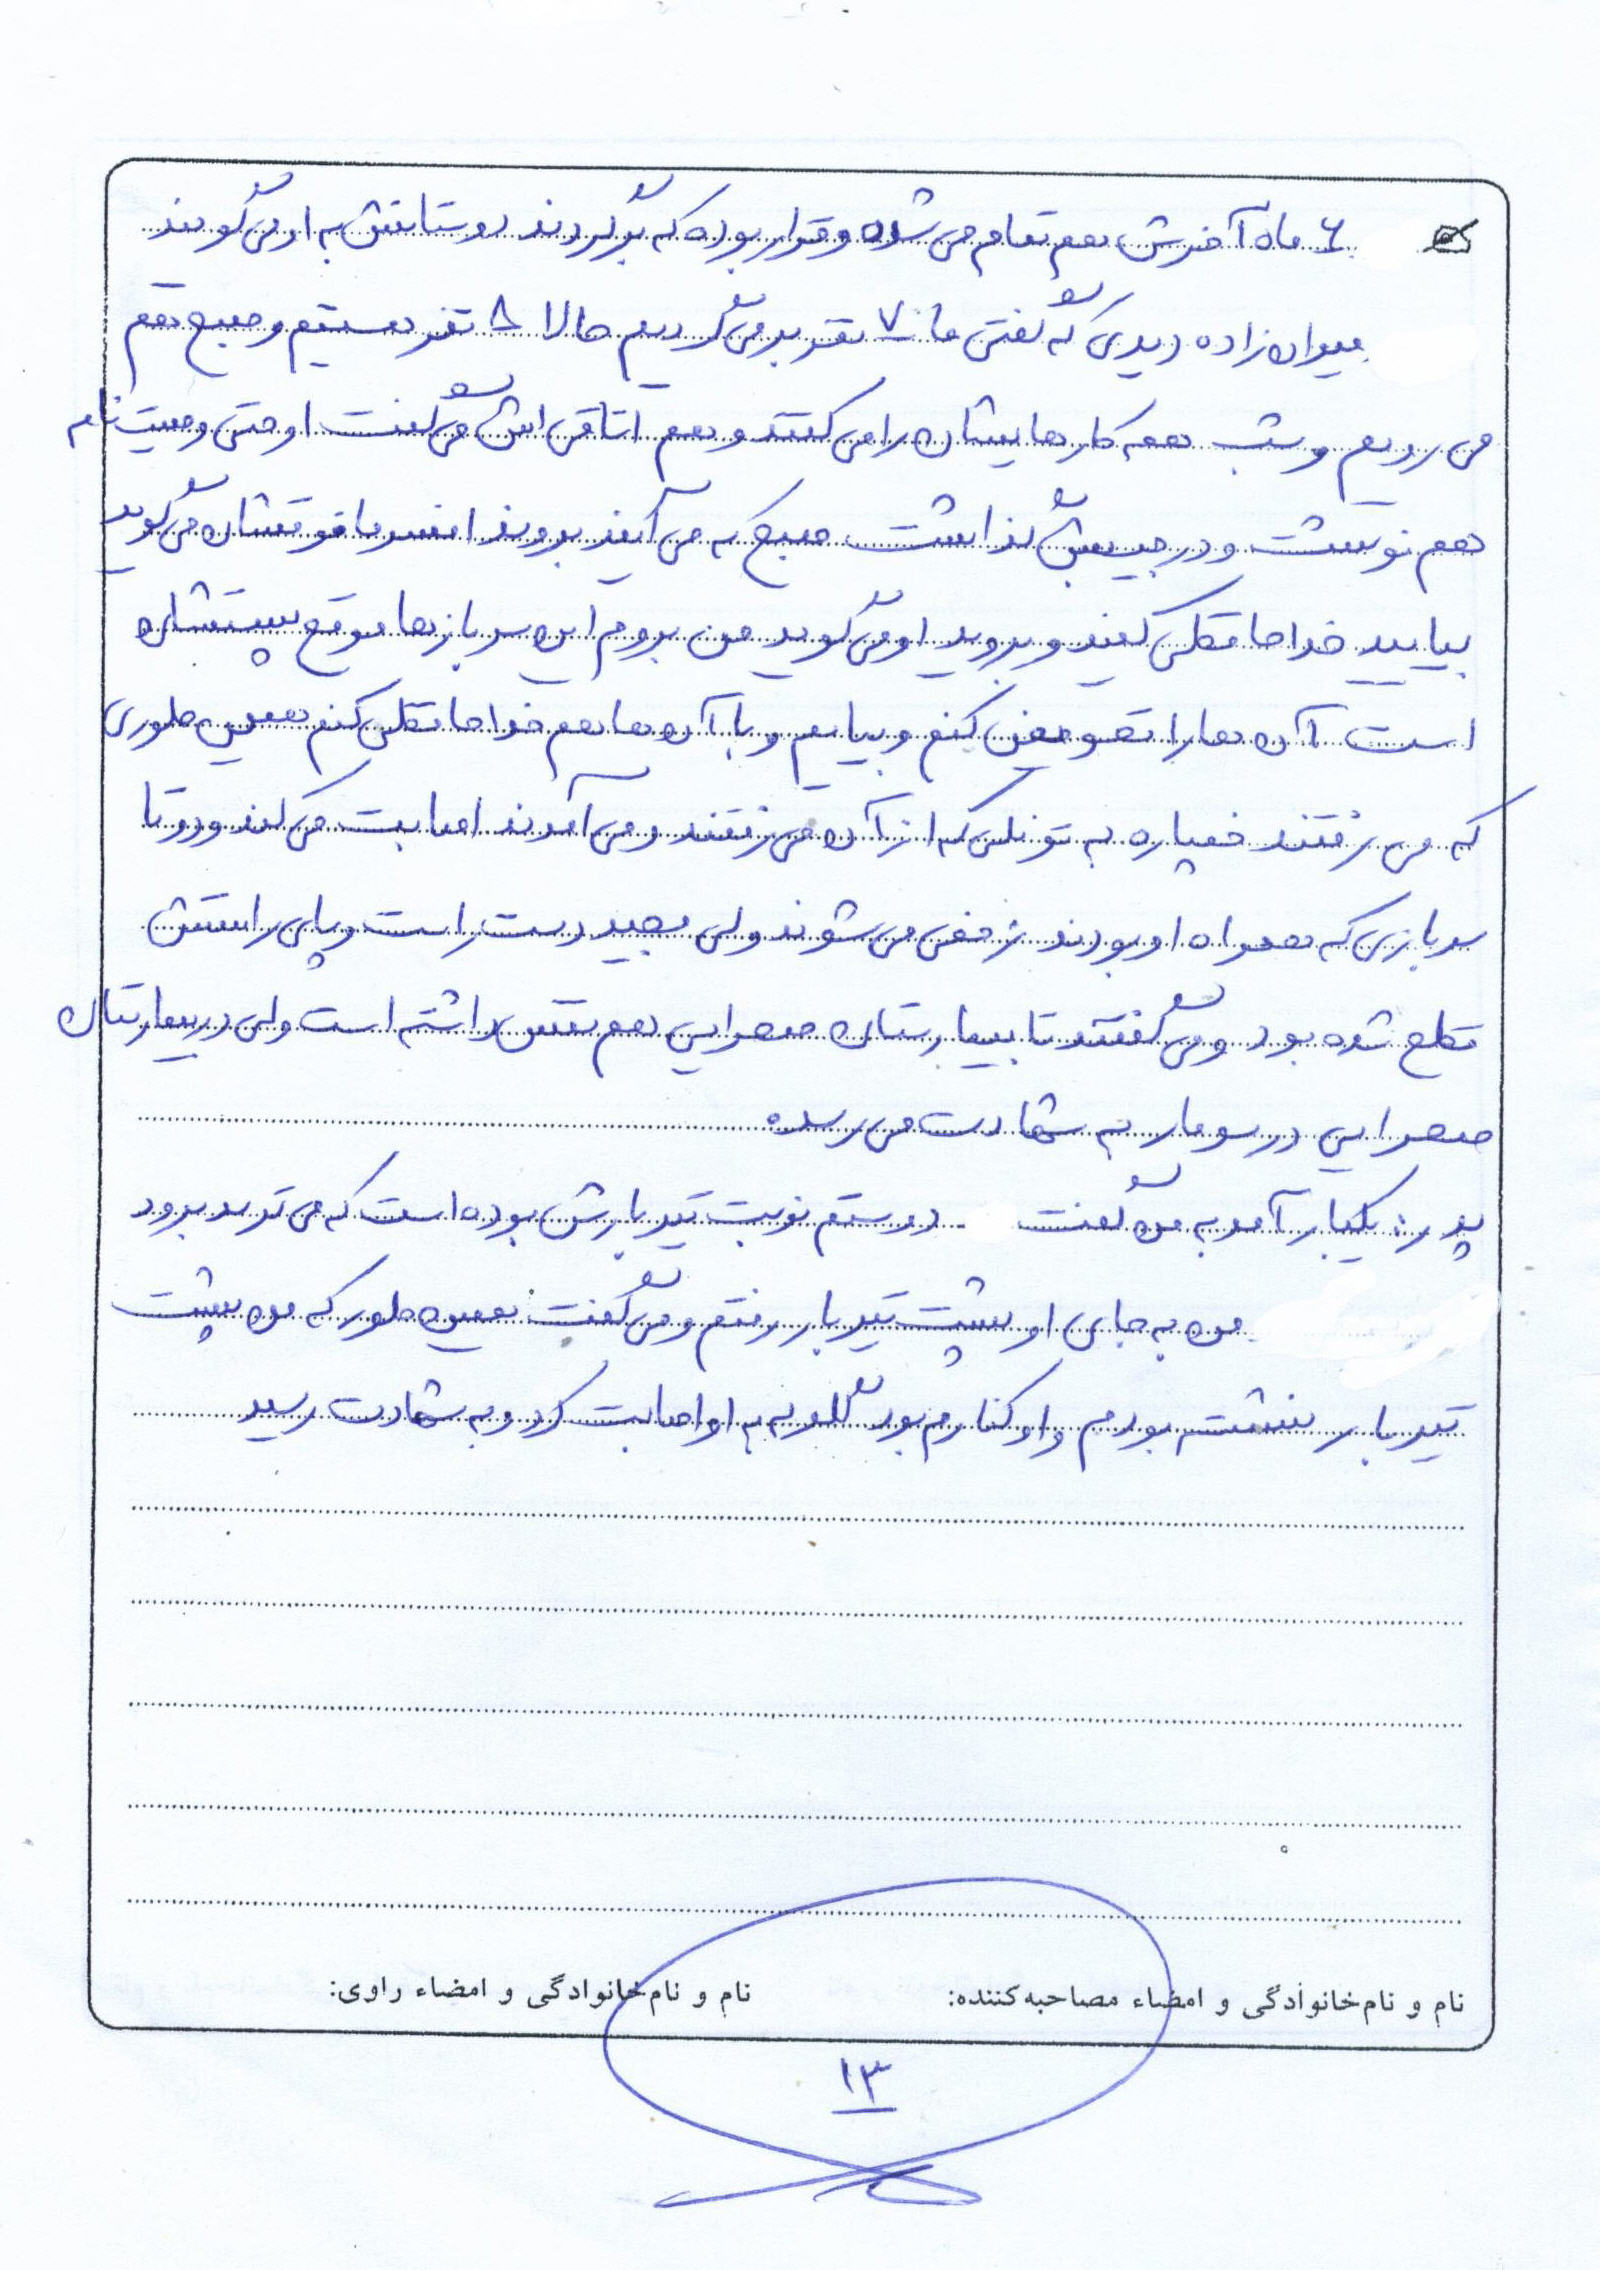 ۶ ماه آخرش هم تمام می شده و قرار بوده که برگردند دوستانش به او می گویند
میوان زاده دیدی که گفتی ما ۷ نفر برمی گردیم حالا ۸ نفر هستیم و صبح هم
می رویم و شب همه کارهایشان را می کنند و هم اتاقی اش می گفت او حتی وصیت نامه
هم نوشت و در جیبش گذاشت صبح که می آیند بروند افسر مافوقشان می گوید
بیایید خداحافظی کنید و بروید او می گوید من بروم این سربازها موقع پستشان
است آن ها را تعویض کنم و بیایم و با آن ها هم خداحافظی کنم همین طوری
که می رفتند خمپاره به تونلی که از آن می رفتند و می آمدند اصابت می کند و دو تا
سربازی که همراه او بودند زخمی می شوند ولی مجید دست راست و پای راستش
قطع شده بود و می گفتند تا بیمارستان صحرایی هم نفس داشته است ولی در بیمارستان
صحرایی در سومار به شهادت می رسد
پدر: یکبار آمد به من گفت دوستم نوبت تیربارش بوده است که می ترسد برود
من به جای او پشت تیربار رفتم و می گفت همین طور که من پشت
تیربار نشسته بودم و او کنارم بود گلوله به او اصابت کرد و به شهادت رسید
نام و نام خانوادگی و امضاء مصاحبه کننده: نام و نام خانوادگی و امضاء راوی:
۱۳